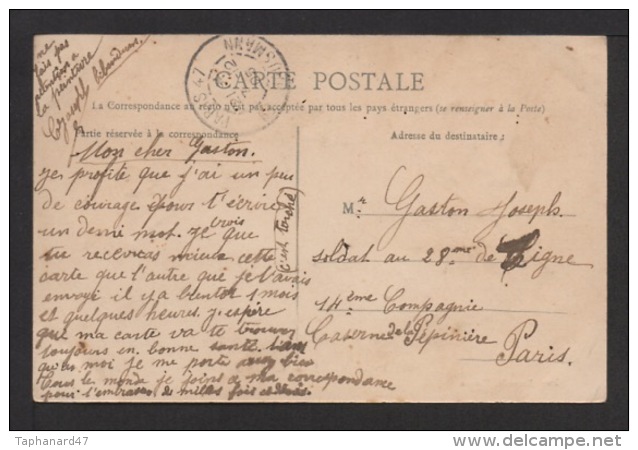 ne
fais pas
attention a
la peinture
CARTE POSTALE
La Correspondance au recto n'est pas acceptée par tous les pays étrangers (se renseigner à la Poste)
Partie réservée à la correspondance
Adresse du destinataire :
Mon cher Gaston.
je profite que j'ai un peu
de courage pour t'écrire
un demi mot. je crois que
tu recevras mieux cette
carte que l'autre que je t'avais
envoyé il y a bientot 1 mois
et quelques heures. j'espère
que ma carte va te trouver
toujours en bonne santé.
quand moi je me porte assez bien
Tous le monde se joins a ma correspondance
pour t'embrasser de milles fois
(c'est torché)
Mr Gaston Joseph.
soldat au 28ème de Ligne
14ème Compagnie
Caserne de la Pépinière
Paris.
Taphanard47
www.delcampe.net